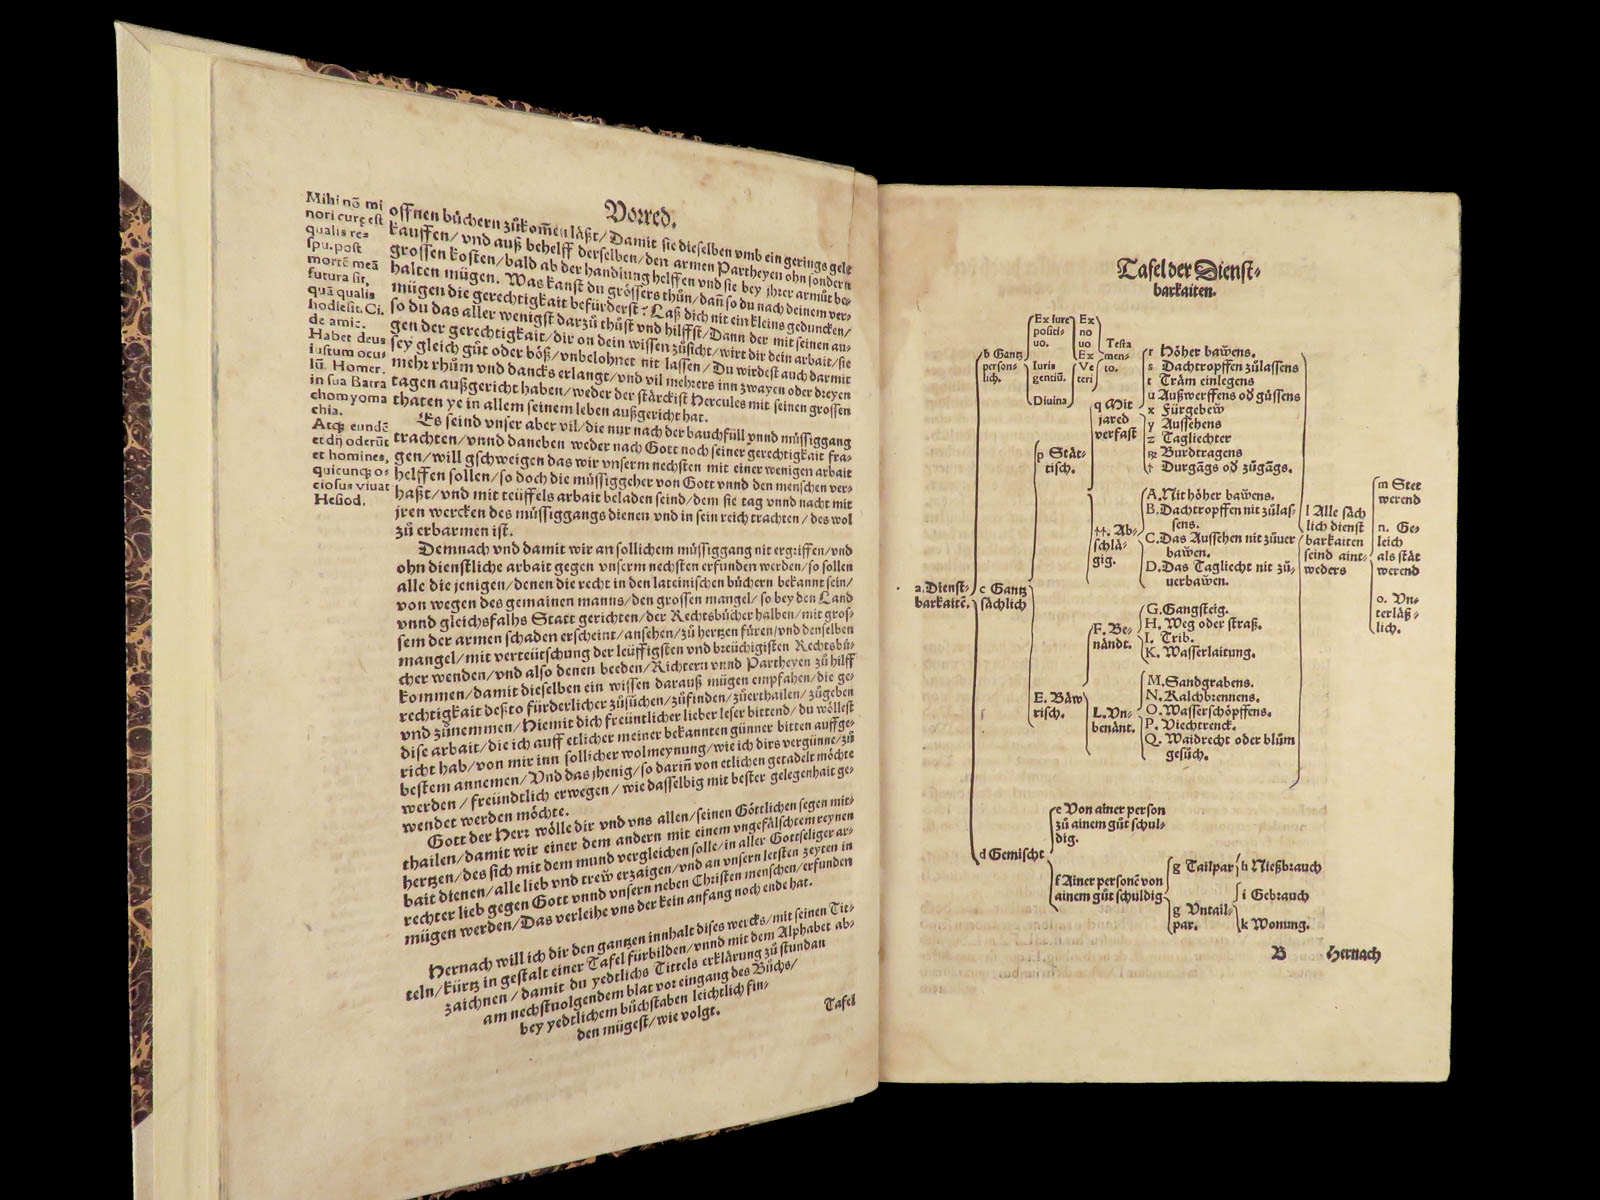 Vorred.
Mihi nõ mi
nori curę est
qualis res=
spu. post
mortẽ meã
futura sit,
quã qualis
hodie sit. Ci.
de amic.
Habet deus
iustum ocu=
lũ. Homer.
in sua Batra
chomyoma
chia.
Atqꝫ eundẽ
et dij oderũt
et homines,
quicunqꝫ o=
ciosus viuat
Hesiod.
offnen bůchern zůkom̃en läßt/ Damit sie dieselben vmb ein gerings gelt
kauffen/ vnd auß behelff derselben/ den armen Partheyen ohn sondern
grossen kosten/ bald ab der handlung helffen vnd sie bey jhrer armůt be=
halten mügen. Was kanst du grössers thůn/ dañ so du nach deinem ver=
mügen die gerechtigkait befürderst? Laß dich nit ein kleins geduncken/
so du das aller wenigst darzů thůst vnd hilffst/ Dann der mit seinen au=
gen der gerechtigkait/ dir on dein wissen zůsicht/ wirt dir dein arbait/ sie
sey gleich gůt oder böß/ vnbelohnet nit lassen/ Du wirdest auch darmit
mehr rhům vnd dancks erlangt/ vnd vil mehrers inn zwayen oder dreyen
tagen außgericht haben/ weder der stärckist Hercules mit seinen grossen
thaten ye in allem seinem leben außgericht hat.
Es seind vnser aber vil/ die nur nach der bauchfüll vnnd můssiggang
trachten/ vnnd daneben weder nach Gott noch seiner gerechtigkait fra=
gen/ will gschweigen das wir vnserm nechsten mit einer wenigen arbait
helffen sollen/ so doch die můssiggeher von Gott vnnd den menschen ver=
haßt/ vnd mit teüffels arbait beladen seind/ dem sie tag vnnd nacht mit
jren wercken des můssiggangs dienen vnd in sein reich trachten/ des wol
zů erbarmen ist.
Demnach vnd damit wir an sollichem můssiggang nit ergriffen/ vnd
ohn dienstliche arbait gegen vnserm nechsten erfunden werden/ so sollen
alle die jenigen/ denen die recht in den lateinischen bůchern bekannt sein/
von wegen des gemainen manns/ den grossen mangel/ so bey den Land
vnnd gleichsfalhs Statt gerichten/ der Rechtsbůcher halben/ mit gros=
sem der armen schaden erscheint/ ansehen/ zů hertzen füren/ vnd denselben
mangel/ mit verteütschung der leüffigsten vnd breüchigisten Rechtsbů=
cher wenden/ vnd also denen beeden/ Richtern vnnd Partheyen zů hilff
kommen/ damit dieselben ein wissen darauß mügen empfahen/ die ge=
rechtigkait deßto fürderlicher zůsůchen/ zůfinden/ zůerthailen/ zůgeben
vnd zůnemmen/ Hiemit dich freüntlicher lieber leser bittend/ du wöllest
dise arbait/ die ich auff etlicher meiner bekannten günner bitten auffge=
richt hab/ von mir inn sollicher wolmeynung/ wie ich dirs vergünne/ zů
bestem annemen/ Vnd das jhenig/ so dariñ von etlichen getadelt möchte
werden/ freündtlich erwegen/ wie dasselbig mit bester gelegenhait ge=
wendet werden möchte.
Gott der Herr wölle dir vnd vns allen/ seinen Göttlichen segen mit=
thailen/ damit wir einer dem andern mit einem vngefälschtem reynen
hertzen/ des sich mit dem mund vergleichen solle/ in aller Gottseliger ar=
bait dienen/ alle lieb vnd trew erzaigen/ vnd an vnsern letsten zeyten in
rechter lieb gegen Gott vnnd vnsern neben Christen menschen/ erfunden
mügen werden/ Das verleihe vns der kein anfang noch ende hat.
Hernach will ich dir den gantzen innhalt dises wercks/ mit seinen Tit=
teln/ kürtz in gestalt einer Tafel fürbilden/ vnnd mit dem Alphabet ab=
zaichnen/ damit du yedtlichs Tittels erklärung zů stundan
am nechstuolgendem blat vor eingang des Bůchs/
bey yedtlichem bůchstaben leichtlich fin=
den mügest/ wie volgt.
Tafel
Tafel der Dienst=
barkaiten.
a. Dienst=
barkaitẽ.
b Gantz
person=
lich.
Ex iure
positi=
uo.
Iuris
gentiũ.
Diuina
Ex
no
uo
Ex
Ve
teri
Testa
men=
to.
c Gantz
sächlich
p Stät=
tisch.
q Mit
jared
verfast
r Höher baẅens.
s Dachtropffen zůlassens
t Träm einlegens
u Außwerffens od güssens
x Fürgebeẅ
y Aussehens
z Tagliechter
ꝛc Burdtragens
† Durgãgs od zůgãgs.
††. Ab=
schlä=
gig.
A. Nit höher baẅens.
B. Dachtropffen nit zůlas=
sens.
C. Das Aussehen nit zůuer
baẅen.
D. Das Tagliecht nit zů=
uerbaẅen.
E. Bäw
risch.
F. Be=
nändt.
G. Gangsteig.
H. Weg oder straß.
I. Trib.
K. Wasserlaitung.
L. Vn=
benänt.
M. Sandgrabens.
N. Kalchbrennens.
O. Wasserschöpffens.
P. Viechtrenck.
Q. Waidrecht oder blům
gesůch.
l Alle säch
lich dienst
barkaiten
seind aint=
weders
m Stet
werend
n. Ge=
leich
als stät
werend
o. Vn=
terläß=
lich.
d Gemischt
e Von ainer person
zů ainem gůt schul=
dig.
f Ainer personẽ von
ainem gůt schuldig
g Tailpar
h Nießbrauch
g Vntail=
par.
i Gebrauch
k Wonung.
B
Hernach